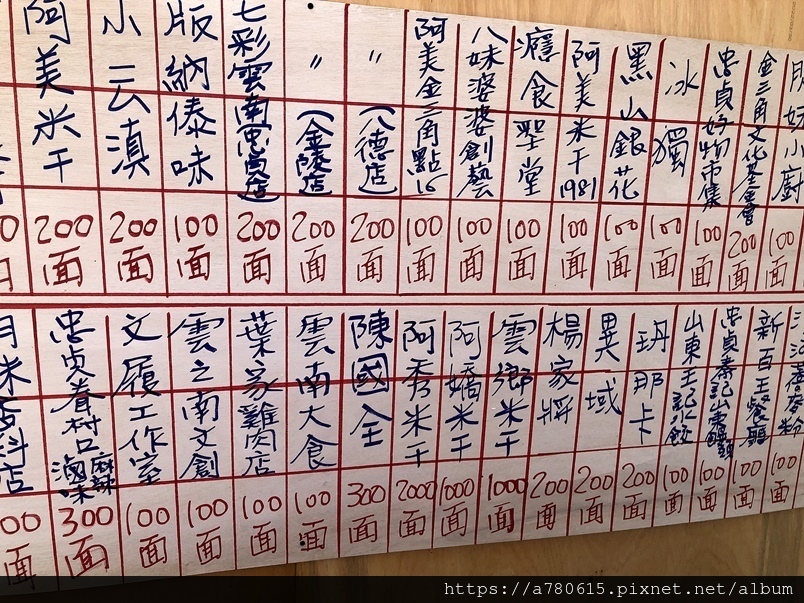 阿美米干
200面
小云滇
200面
版納傣味
100面
七彩雲南(忠貞店)
200面
〃(金陵店)
200面
〃(八德店)
200面
阿美金三角點16
100面
八妹婆婆創藝
100面
癮食聖堂
100面
阿美米干1981
100面
黑山銀花
100面
冰獨
100面
忠貞好物市集
100面
金三角文化基金會
200面
小廚
100面
米香料店
00面
忠貞眷村口麻辣滷味
300面
文履工作室
100面
雲之南文創
100面
葉家雞肉店
100面
雲南大食
100面
陳國全
300面
阿秀米干
2000面
阿嬌米干
1000面
雲鄉米干
1000面
楊家將
200面
異域
200面
玬那卡
200面
山東王記水餃
100面
忠貞秦記山東饅頭
100面
新百王餐廳
100面
100面
https://a780615.pixnet.net/album